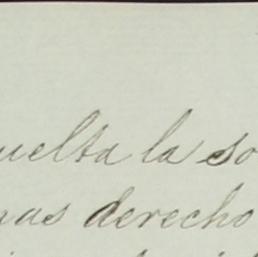 uelta la so
nas derecho